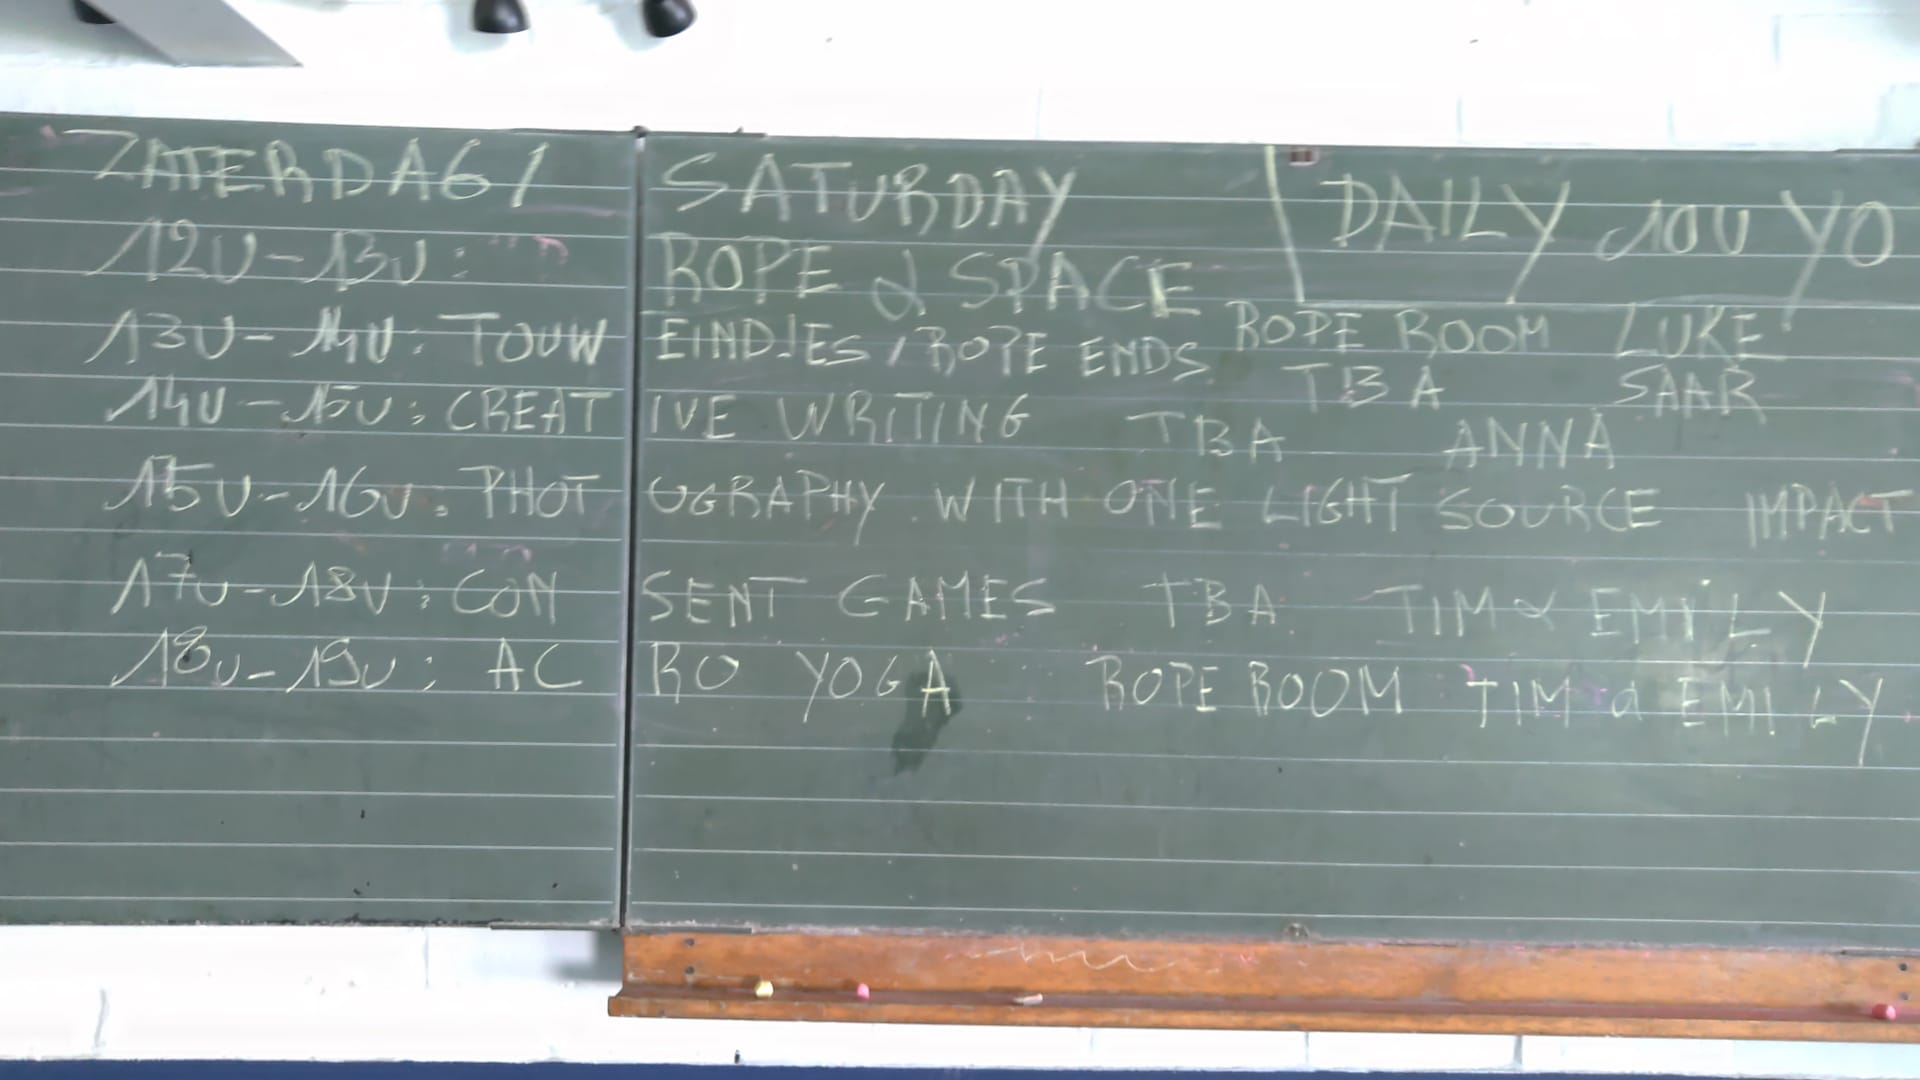 ZATERDAG / SATURDAY DAILY 10U YO
12U-13U: ROPE & SPACE ROPE ROOM LUKE
13U-14U: TOUWEINDJES / ROPE ENDS TBA SAAR
14U-15U: CREATIVE WRITING TBA ANNA
15U-16U: PHOTOGRAPHY WITH ONE LIGHT SOURCE IMPACT
17U-18U: CONSENT GAMES TBA TIM & EMILY
18U-19U: ACRO YOGA ROPE ROOM TIM & EMILY